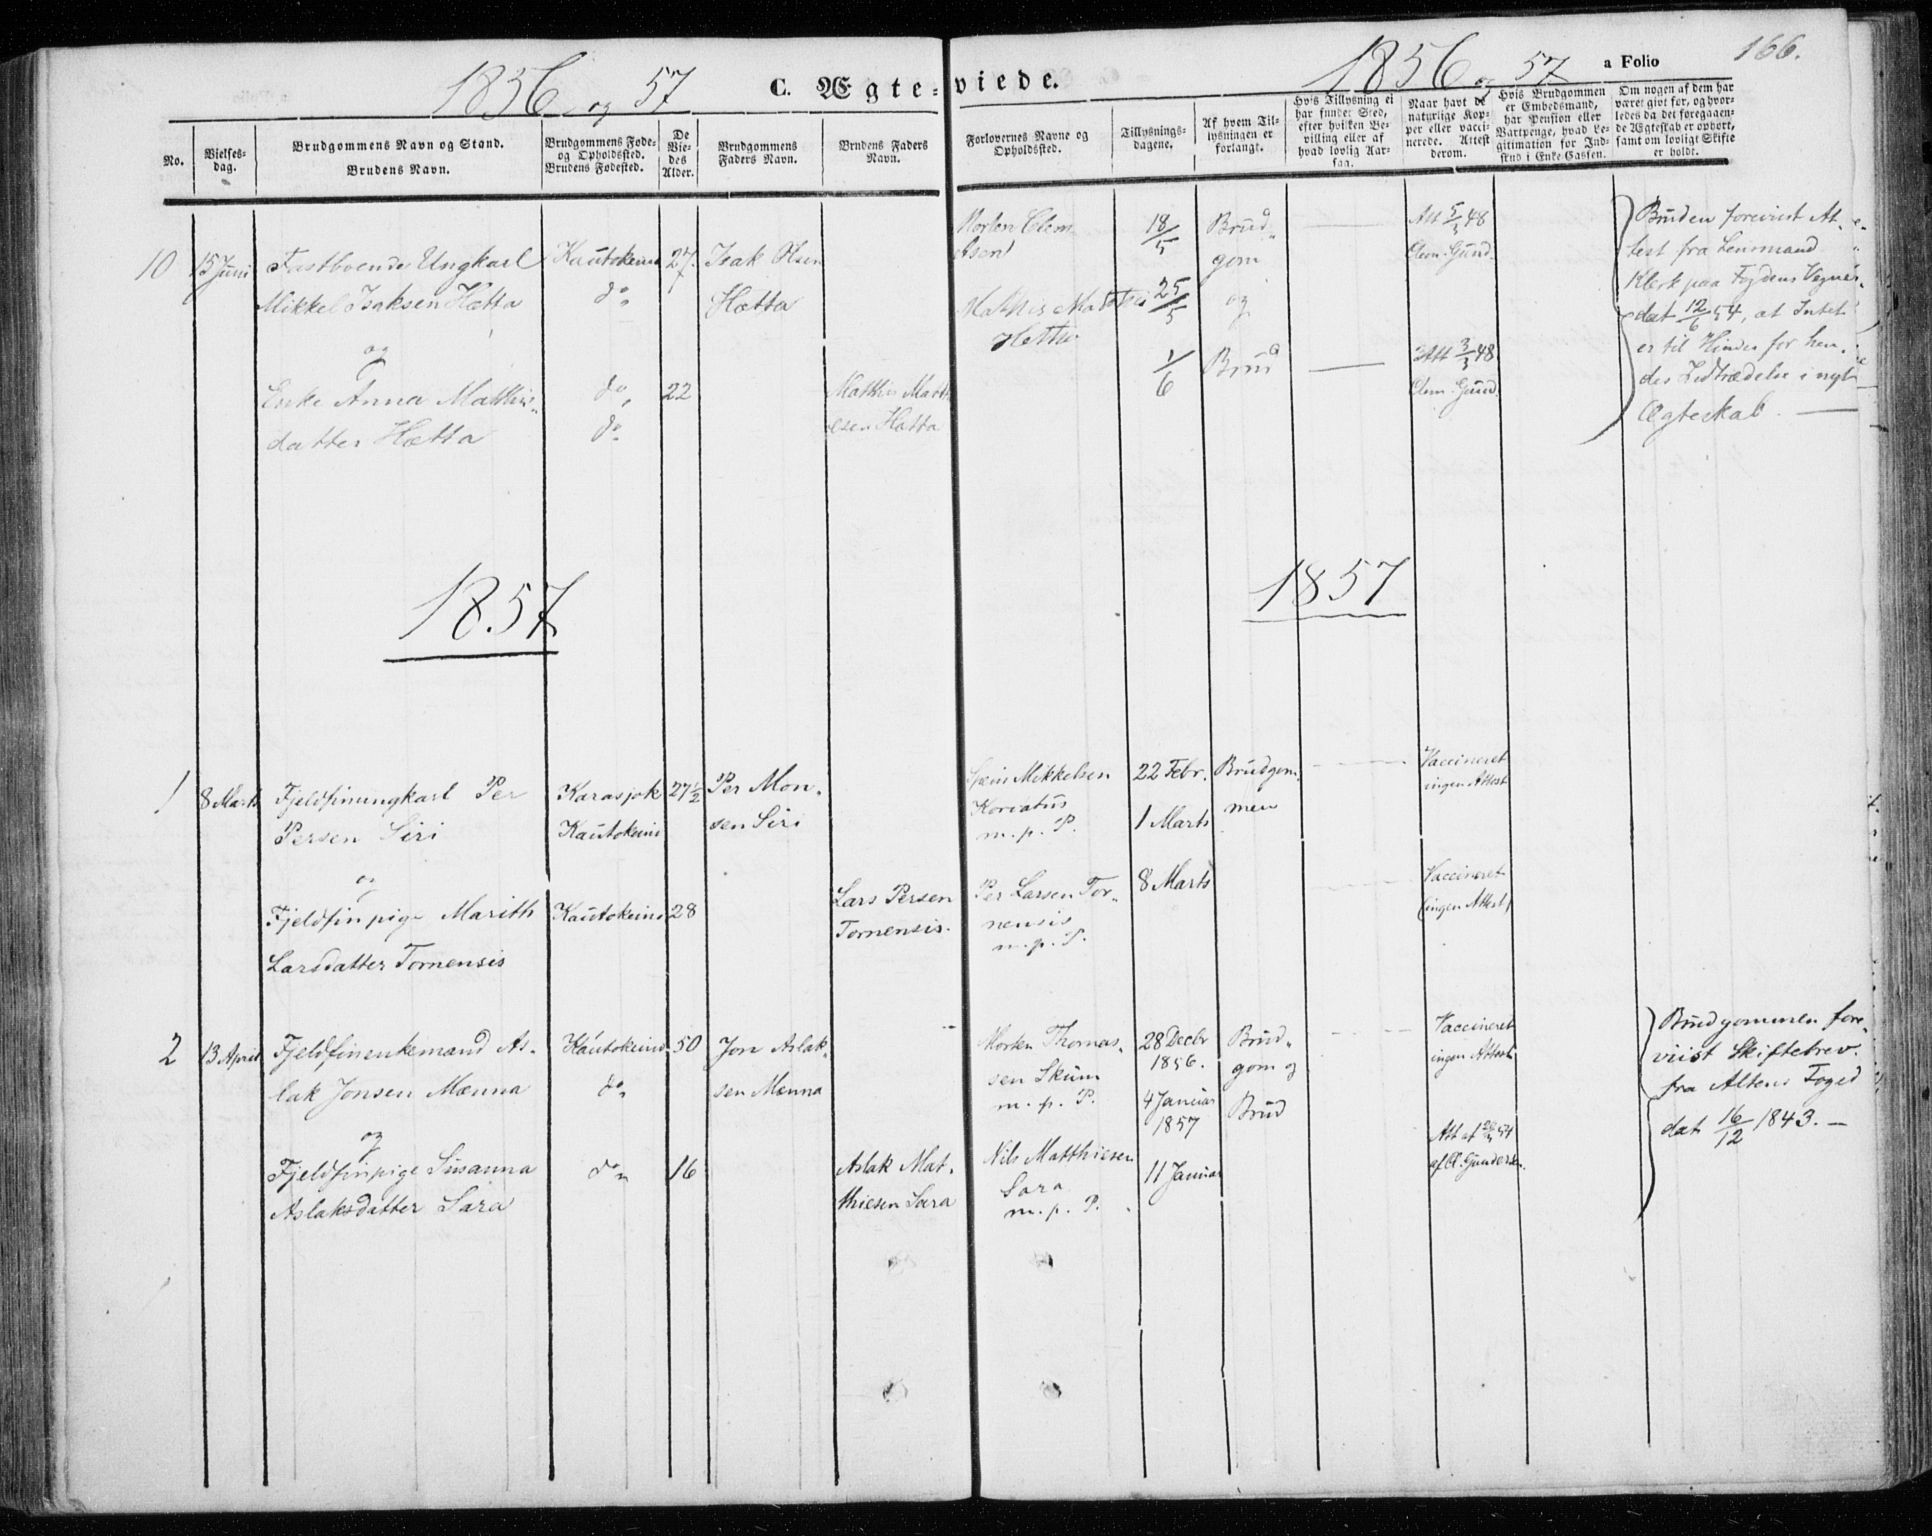 1856 og 57
C. Ægte-viede.
1856 og 57
a Folio
166.
No.
Vielses-
dag.
Brudgommens Navn og Stand.
Brudens Navn.
Brudgommens Føde-
og Opholdssted.
Brudens Fødested.
De
Vie-
des
Alder.
Brudgommens
Faders Navn.
Brudens Faders
Navn.
Forlovernes Navne og
Opholdssted.
Tillysnings-
dagene.
Af hvem Til-
lysningen er
forlangt.
Hvis Tillysning ei
har fundet Sted,
efter hvilken Be-
villing eller af
hvad lovlig Aar-
sag.
Naar havt de
naturlige Kop-
per eller vacci-
nerede. Attest
derom.
Hvis Brudgommen
er Embedsmand,
har Pension eller
Vartpenge, hvad Le-
gitimation for Ind-
skud i Enke-Cassen.
Om nogen af dem har
været givt før, og hvor-
ledes da det foregaaen-
de Ægteskab er ophørt,
samt om lovligt Skifte
er holdt.
10
15 Juni
Fastboende Ungkarl
Mikkel Isaksen Hætta
og
Enke Anna Matthis-
datter Hætta
Kautokeino
do
do
do
27
22
Isak Olsen
Hætta
Matthis Matth
esen Hætta
Morten Clem
etsen
Matthis Matthis
Hætta
18/5
25/5
1/6
Brud-
gom
og
Brud
Att 5/3 48
Clem. Gund.
Att 3/3 48
Clem. Gund.
Bruden forevist At-
test fra Lensmand
Klerk paa Fogdens Vegne
dat 12/6 54, at Intet
er til Hinder for hen-
des Indtrædelse i nyt
Ægteskab. —
1857
1857
1
8 Marts
Fjeldfinungkarl Per
Persen Siri
og
Fjeldfinpige Marith
Larsdatter Tornensis
Karasjok
Kautokeino
Kautokeino
27 1/2
28
Per Mon-
sen Siri
Lars Persen
Tornensis.
Spein Mikkelsen
Koriatus
m. p. P.
Per Larsen Tor-
nensis
m. p. P.
22 Febr.
1 Marts
8 Marts
Brudgom-
men
Vaccineret
ingen Attest
Vaccineret
(ingen Attest)
2
13 April
Fjeldfinenkemand As-
lak Jonsen Mænna
og
Fjeldfinpige Susanna
Aslaksdatter Sara
Kautokeino
do
do
50
16
Jon Aslak-
sen Mænna
Aslak Mat-
thiesen Sara
Morten Thomas-
sen Skum
m. p. P.
Nils Matthiesen
Sara
m. p. P.
28 Decbr
1856.
4 Januar
1857
11 Januar
Brud-
gom og
Brud
Vaccineret
ingen Attest
Att af 54
af Cl. Gundersen.
Brudgommen fore-
viist Skiftebrev
fra Altens Foged
dat 16/12 1843. —